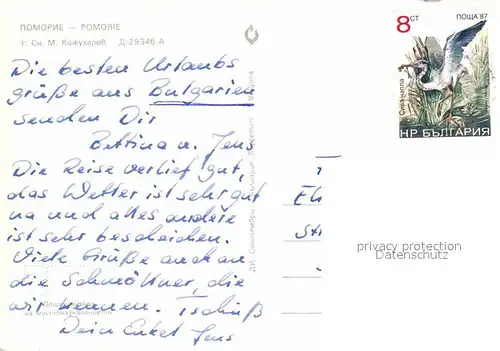 ПОМОРИЕ — POMORIE
т. Сн. М. Кожухаров. Д-29346-А
Die besten Urlaubs
grüße aus Bulgarien
senden Dir
Bettina u. Jens
Die Reise verlief gut,
das Wetter ist sehr gut
na und alles andere
ist sehr bescheiden.
Viele Grüße auch an
die Schmöllner, die
wir kennen. Tschüß
Dein Enkel Jens
8 СТ
ПОЩА '87
Сива чапла
НР БЪЛГАРИЯ
privacy protection
Datenschutz